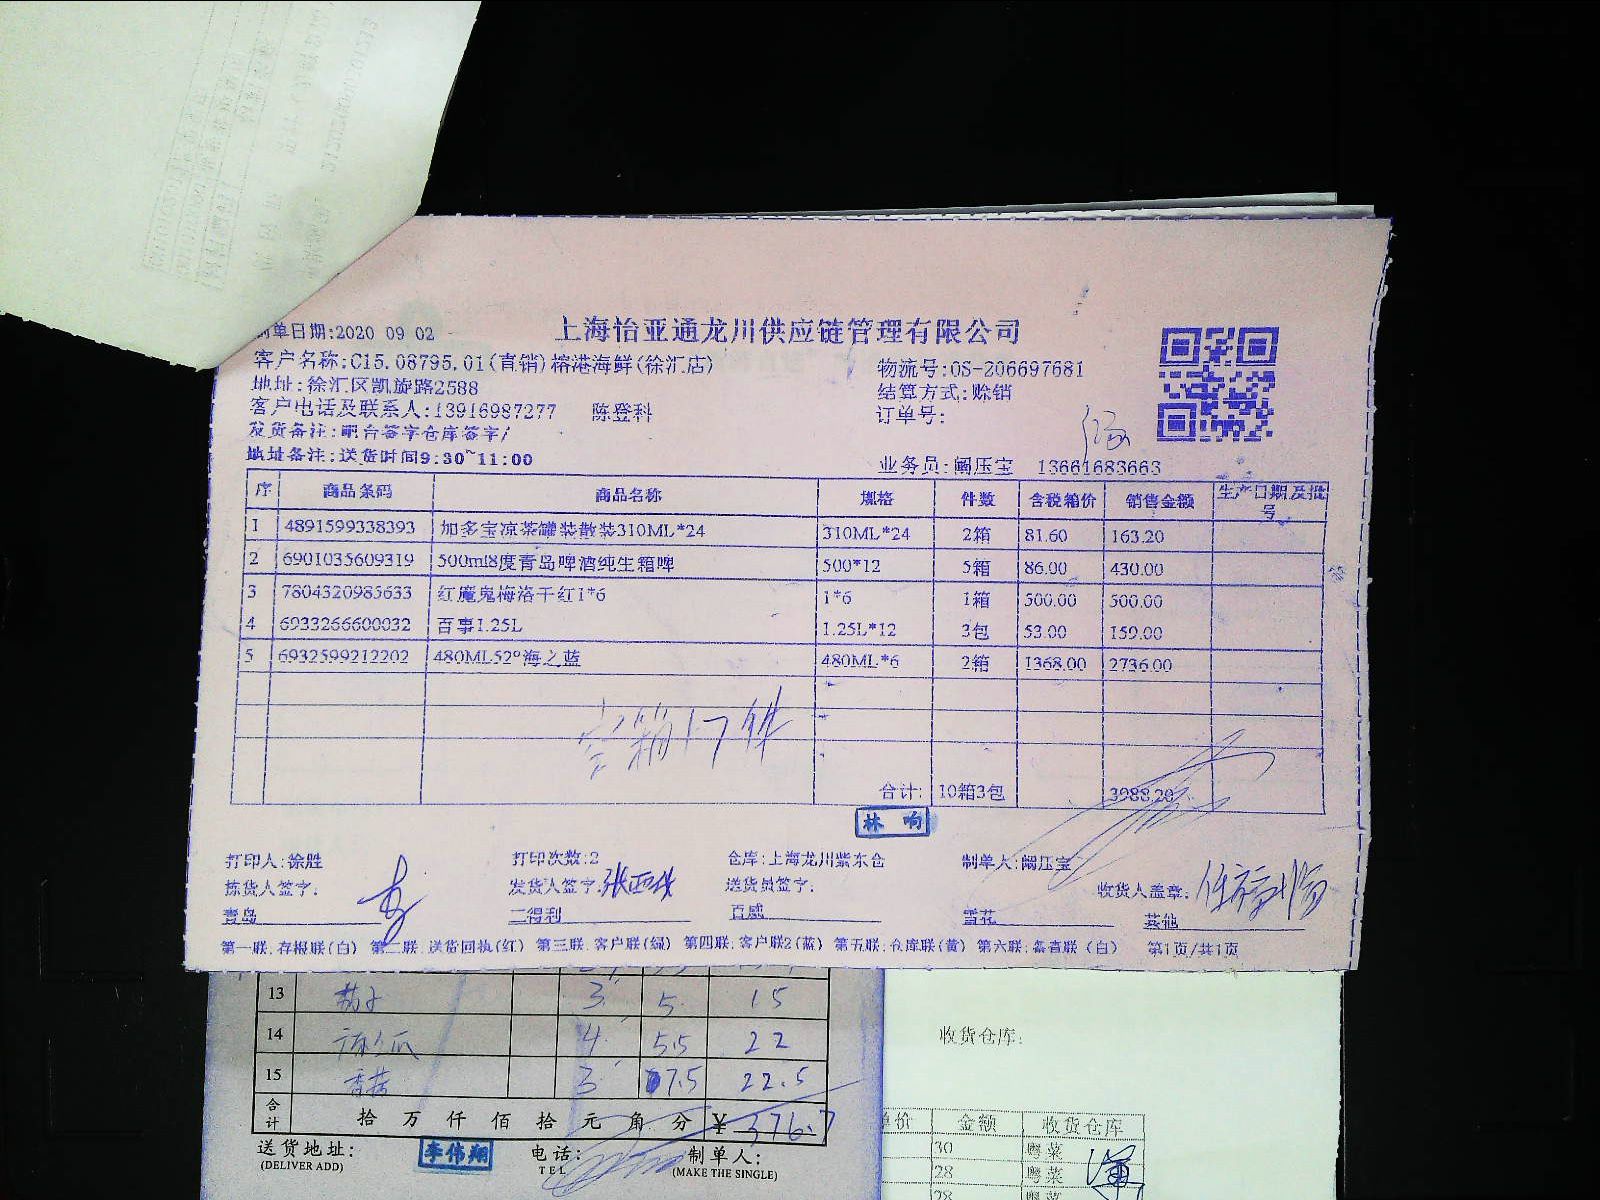 制单日期:2020 09 02
上海怡亚通龙川供应链管理有限公司
客户名称:C15.08795.01(直销)榕港海鲜(徐汇店)
物流号:OS-206697681
地址:徐汇区凯旋路2588
结算方式:赊销
客户电话及联系人:13916987277 陈登科
订单号:
发货备注:吧台签字仓库签字/
地址备注:送货时间9:30~11:00
业务员:阚压宝 13661683663
序 商品条码 商品名称 规格 件数 含税箱价 销售金额 生产日期及批号
1 4891599338393 加多宝凉茶罐装散装310ML*24 310ML*24 2箱 81.60 163.20
2 6901035609319 500ml8度青岛啤酒纯生箱啤 500*12 5箱 86.00 430.00
3 7804320985633 红魔鬼梅洛干红1*6 1*6 1箱 500.00 500.00
4 6933266600032 百事1.25L 1.25L*12 3包 53.00 159.00
5 6932599212202 480ML52°海之蓝 480ML*6 2箱 1368.00 2736.00
空箱17件
合计: 10箱3包 3988.20
林响
打印人:徐胜 打印次数:2 仓库:上海龙川紫东仓 制单人:阚压宝
拣货人签字: 发货人签字: 送货员签字: 收货人盖章:
青岛 三得利 百威 雪花 其他
第一联:存根联(白) 第二联:送货回执(红) 第三联:客户联(绿) 第四联:客户联2(蓝) 第五联:仓库联(黄) 第六联:备查联(白) 第1页/共1页
13 茄子 3 5 15
14 4 5.5 22
15 香菇 3 7.5 22.5
合计 拾 万 仟 佰 拾 元 角 分 ¥ 376.7
送货地址: 李伟翔 电话: 制单人:
(DELIVER ADD) TEL (MAKE THE SINGLE)
收货仓库:
单价 金额 收货仓库
30 粤菜
28 粤菜
28 粤菜